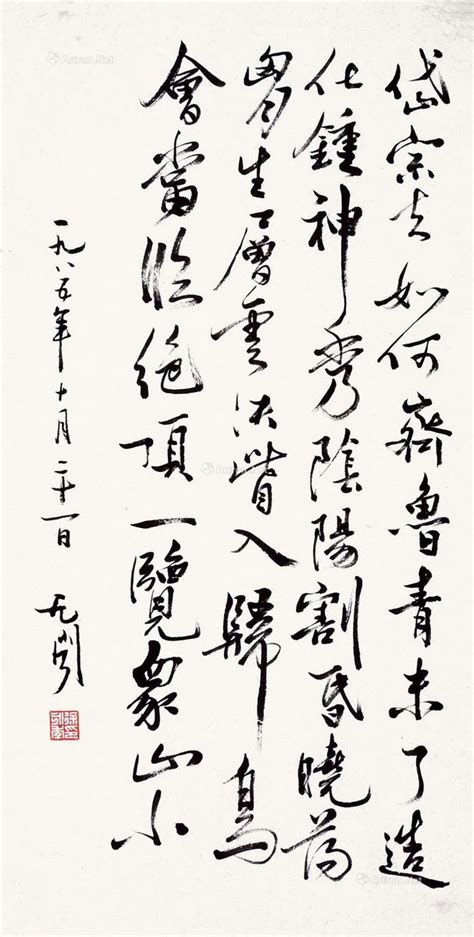 岱宗夫如何齊魯青未了造
化鍾神秀陰陽割昏曉蕩
胷生層雲決眥入歸鳥
會當臨絕頂一覽眾山小
一九八五年十月二十一日 无聞
Artron.Net